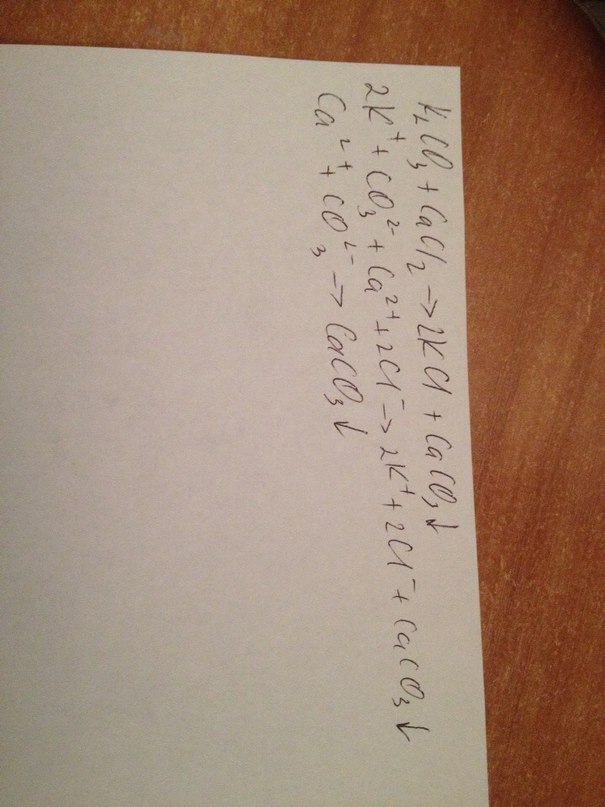 K₂CO₃ + CaCl₂ → 2KCl + CaCO₃↓
2K⁺ + CO₃²⁻ + Ca²⁺ + 2Cl⁻ → 2K⁺ + 2Cl⁻ + CaCO₃↓
Ca²⁺ + CO₃²⁻ → CaCO₃↓